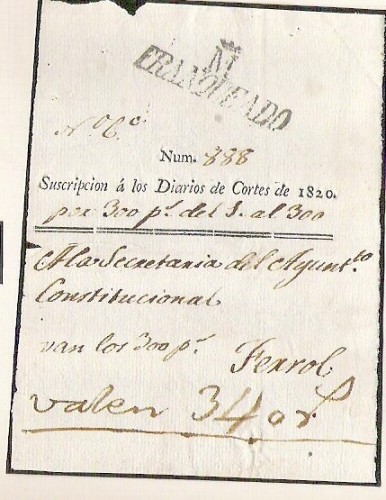 M
FRANQUEADO
Nº 6.º
Num. 888
Suscripcion á los Diarios de Cortes de 1820.
por 300 p.s del 1. al 300
A la Secretaria del Ayunt.to
Constitucional
van los 300 p.s
Ferrol
valen 34 o r.s